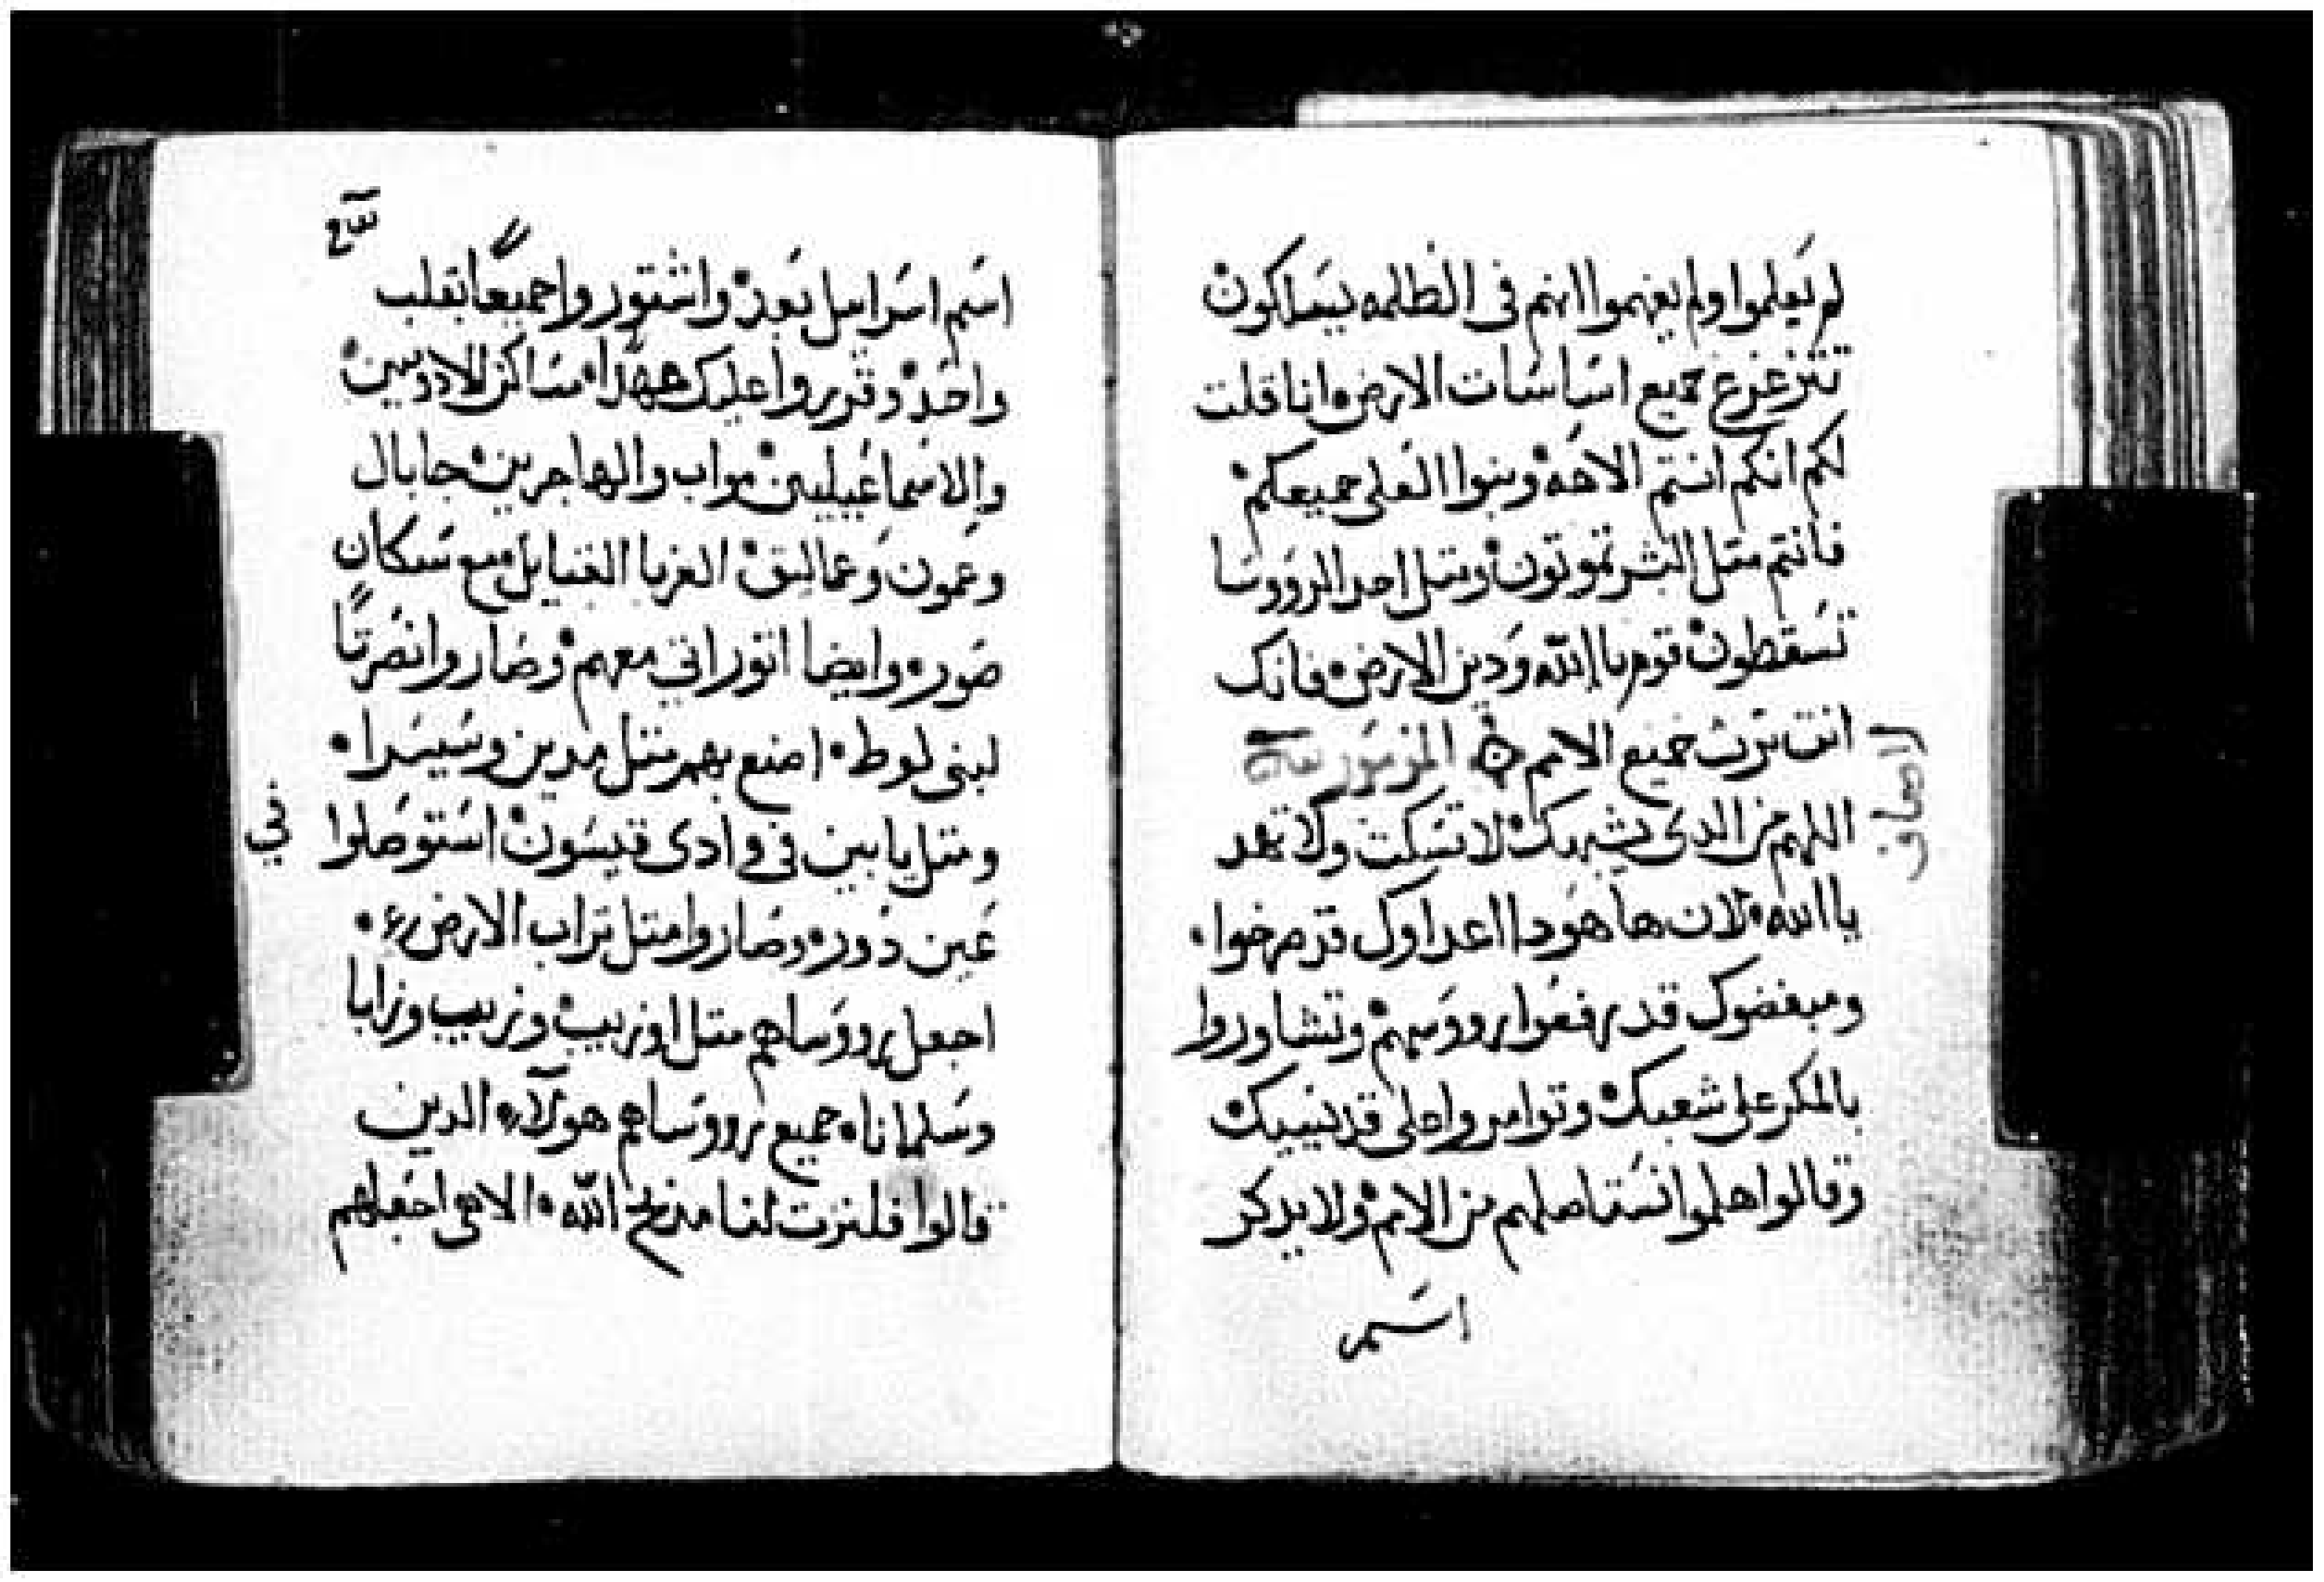 لم يعلموا ولم يفهموا انهم في الظلمه يسلكون
تتزعزع جميع اساسات الارض انا قلت
لكم انكم انتم الاهه وبنوا العلي جميعكم
فانتم متل البشر تموتون ومتل احد الرووسا
تسقطون قوم يا الله ودين الارض فانك
انت ترث جميع الامم المزمور
اللهم من الدي يشبهك لا تسكت ولا تهد
يا الله لان ها هودا اعداوك قد صرخوا
ومبغضوك قد رفعوا رووسهم وتشاوروا
بالمكر على شعبك وتوامروا على قديسيك
وقالوا هلموا نستاصلهم من الامم ولا يدكر
اسم
اسم اسراييل بعد واشتوروا جميعا بقلب
واحد وقرروا عليك عهدا مساكن الادوميين
والاسماعيليين مواب والهاجرين جابال
وعمون وعماليق الغربا القبايل مع سكان
صور وايضا اتور اتي معهم وصاروا نصرتا
لبني لوط اصنع بهم متل مدين وسيسرا
ومتل يابين في وادى قيسون استوصلوا
في
عين دور وصاروا متل تراب الارض
اجعل رووساهم متل اوزيب وزيب وزابا
وسلمانا جميع رووساهم هولاء الدين
قالوا فلنرت لنا مدبح الله الاهي اجعلهم